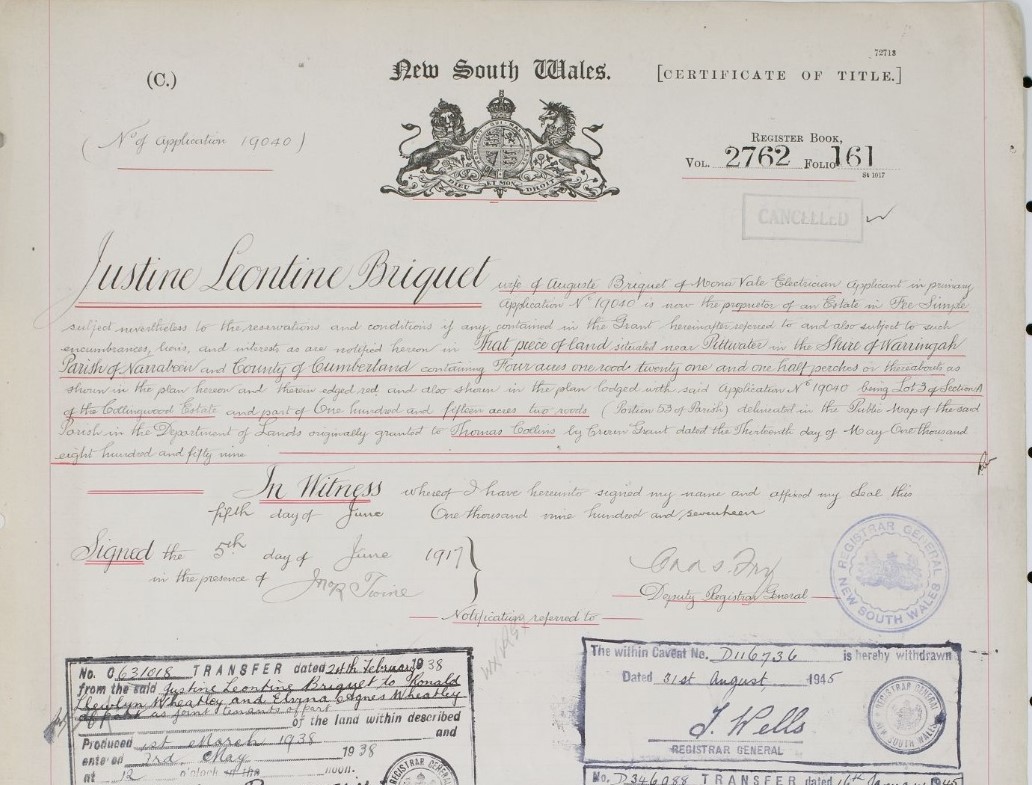 72713
(C.)
New South Wales.
[CERTIFICATE OF TITLE.]
(No of Application 19040)
REGISTER BOOK,
VOL. 2762 FOLIO 161
DIEU ET MON DROIT
CANCELLED
Justine Leontine Briquet wife of Auguste Briquet of Mona Vale Electrician Applicant in primary
Application No 19040 is now the proprietor of an Estate in Fee Simple
subject nevertheless to the reservations and conditions if any contained in the Grant hereinafter referred to and also subject to such
encumbrances, liens, and interests as are notified hereon in That piece of land situated near Pittwater in the Shire of Warringah
Parish of Narrabeen and County of Cumberland containing Four acres one rood twenty one and one half perches or thereabouts as
shown in the plan hereon and therein edged red, and also shown in the plan lodged with said Application No 19040 being Lot 3 of Section A
of the Collingwood Estate and part of One hundred and fifteen acres two roods (Portion 53 of Parish) delineated in the Public Map of the said
Parish in the Department of Lands originally granted to Thomas Collins by Crown Grant dated the Thirteenth day of May One thousand
eight hundred and fifty nine
In Witness whereof I have hereunto signed my name and affixed my Seal this
fifth day of June One thousand nine hundred and seventeen
Signed the 5th day of June 1917
in the presence of Jno R Twine
Deputy Registrar General
REGISTRAR GENERAL NEW SOUTH WALES
Notification referred to
No. C631018 TRANSFER dated 24th February 1938
from the said Justine Leontine Briquet to Ronald
Llewlyn Wheatley and Agnes Wheatley
as joint tenants
of the land within described
Produced 1st March 1938 and
entered 3rd May 1938
at 12 o'clock noon.
The within Caveat No. D116736 is hereby withdrawn
Dated 31st August 1945
J. Wells
REGISTRAR GENERAL
REGISTRAR GENERAL NEW SOUTH WALES
No. D346088 TRANSFER dated 16th January 1945
REGISTRAR GENERAL